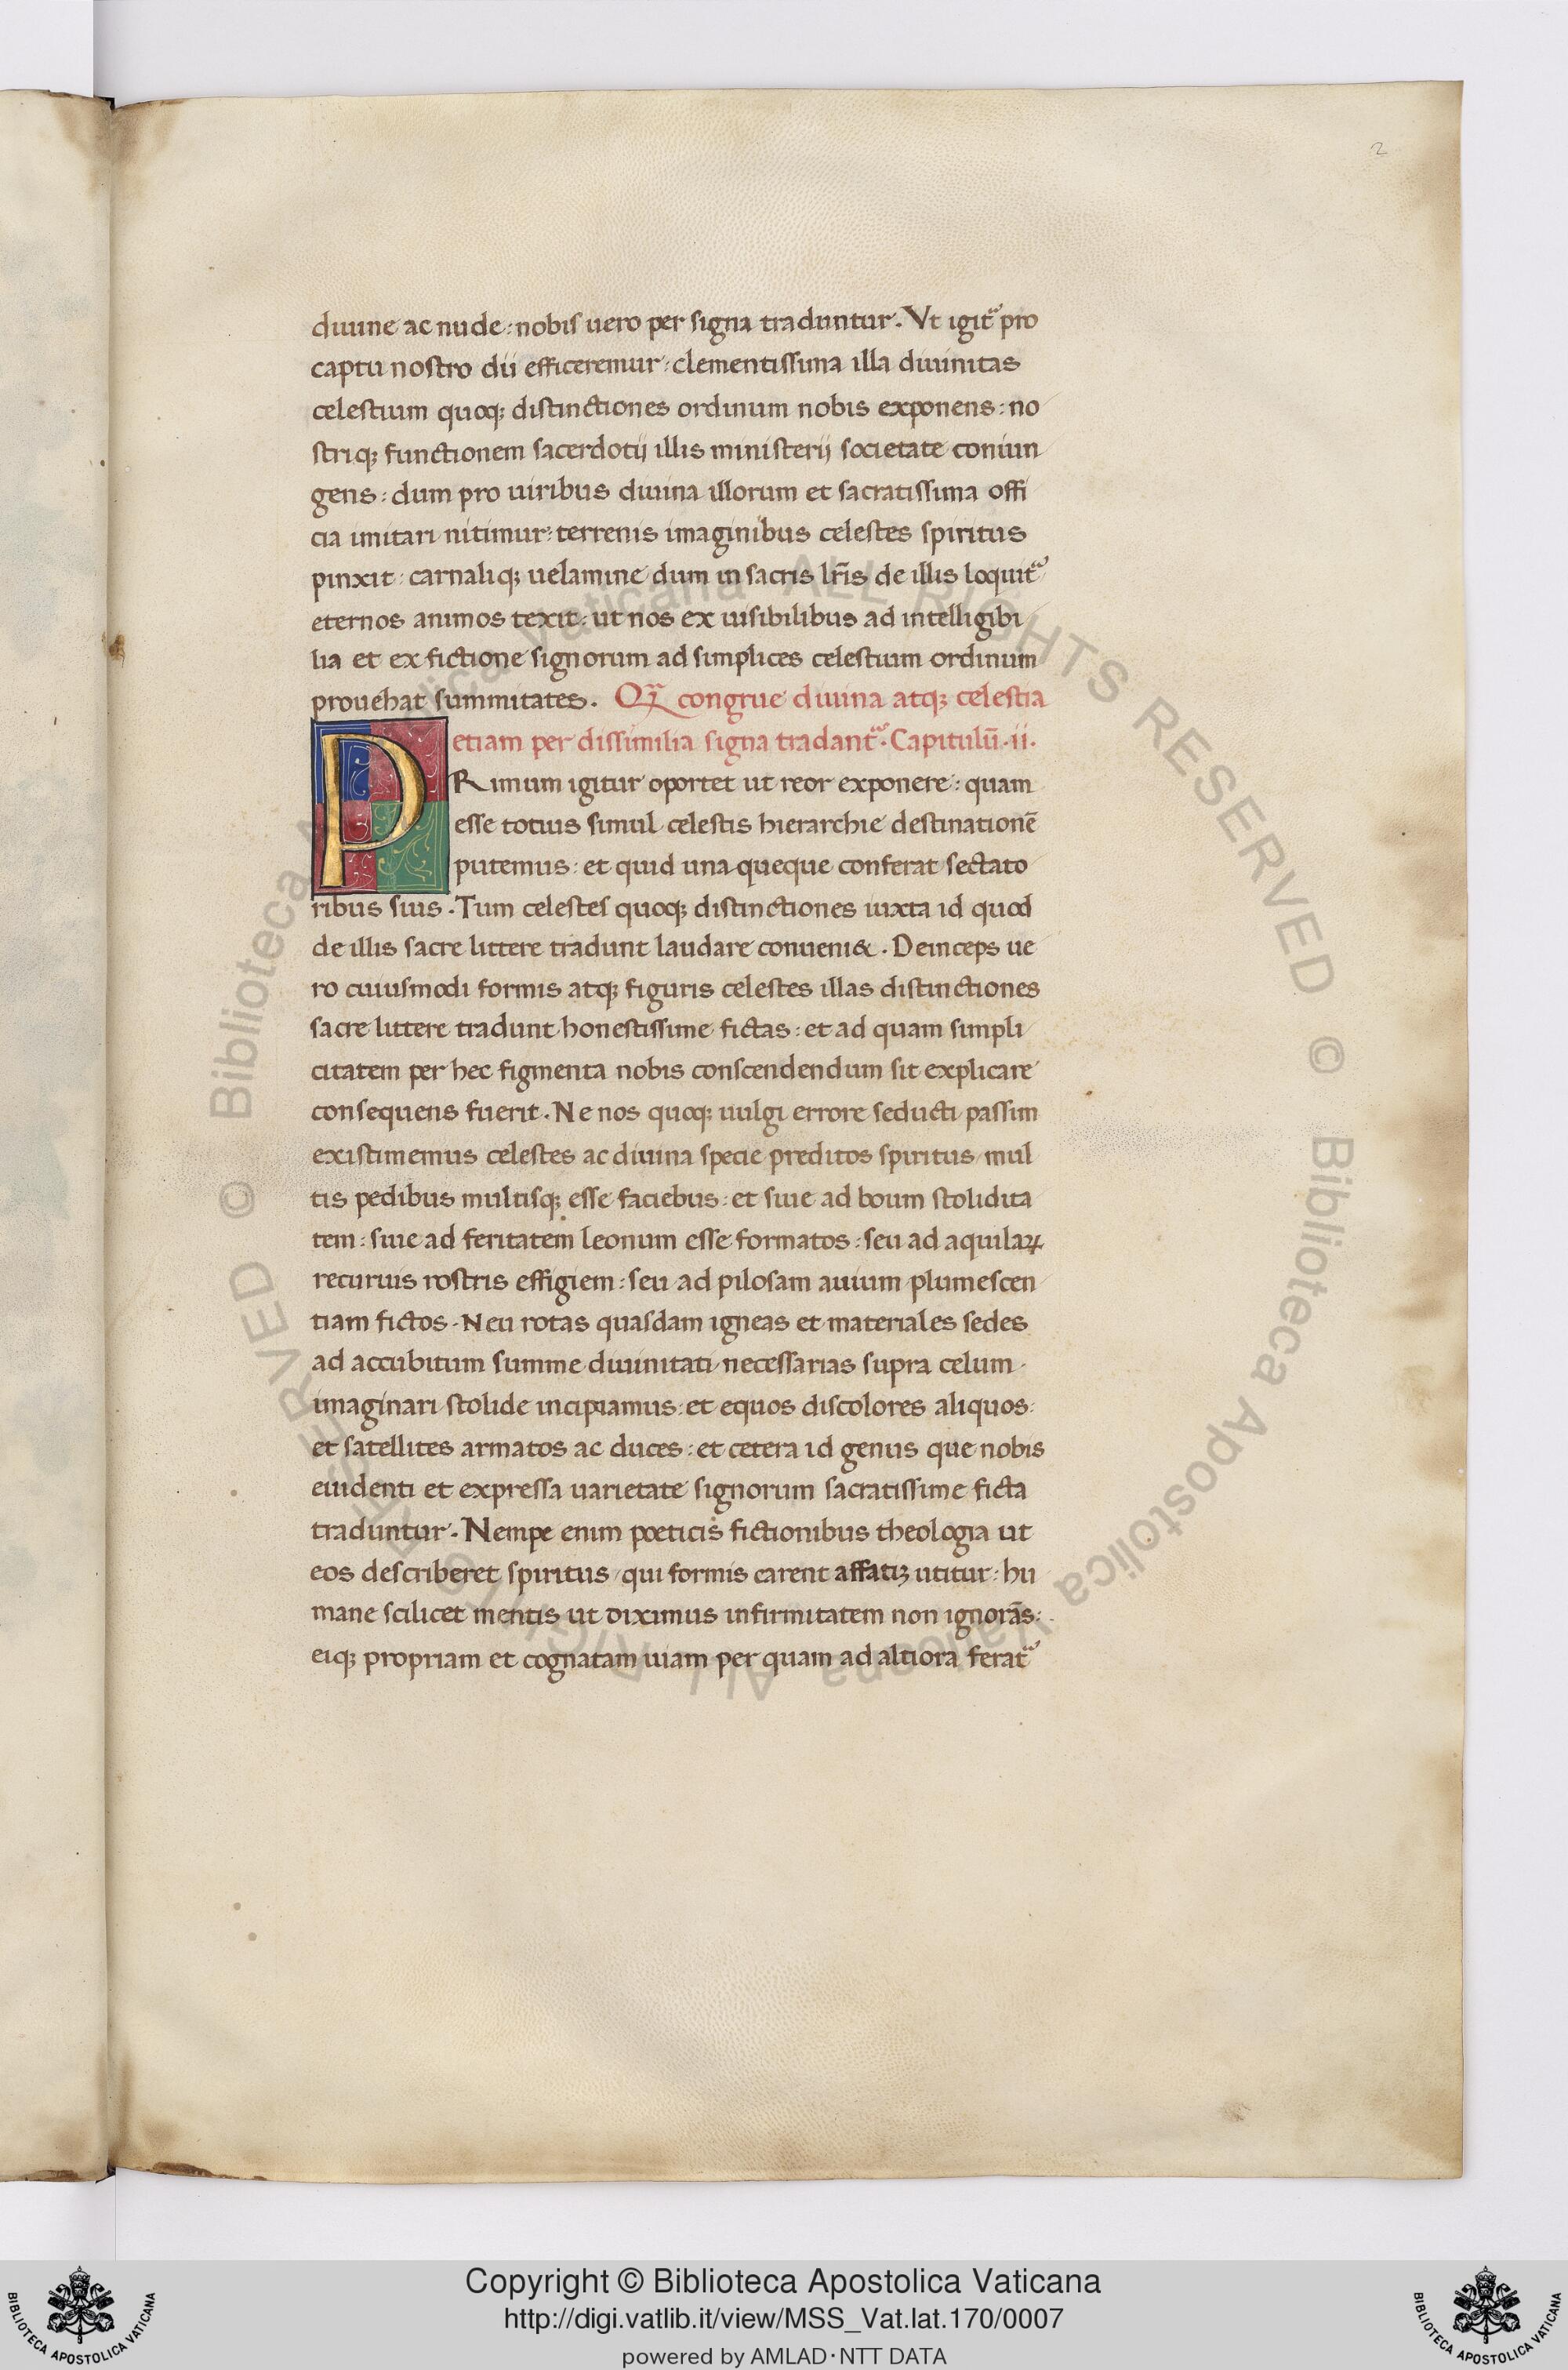 2
diuine ac nude: nobis uero per signa traduntur. Vt igit᷑ pro
captu nostro dii efficeremur: clementissima illa diuinitas
celestium quoq; distinctiones ordinum nobis exponens: no
striq; functionem sacerdotij illis ministerij societate coniun
gens: dum pro uiribus diuina illorum et sacratissima offi
cia imitari nitimur: terrenis imaginibus celestes spiritus
pinxit: carnaliq; uelamine dum in sacris lr̃is de illis loquit᷑
eternos animos texit: ut nos ex uisibilibus ad intelligibi
lia et ex fictione signorum ad simplices celestium ordinum
prouehat summitates. congrue diuina atq; celestia
etiam per dissimilia signa tradant᷑. Capitulũ .ii.
PRimum igitur oportet ut reor exponere: quam
esse totius simul celestis hierarchie destinationẽ
putemus: et quid una queque conferat sectato
ribus suis. Tum celestes quoq; distinctiones iuxta id quod
de illis sacre littere tradunt laudare conueni&. Deinceps ue
ro cuiusmodi formis atq; figuris celestes illas distinctiones
sacre littere tradunt honestissime fictas: et ad quam simpli
citatem per hec figmenta nobis conscendendum sit explicare
consequens fuerit. Ne nos quoq; uulgi errore seducti passim
existimemus celestes ac diuina specie preditos spiritus mul
tis pedibus multisq; esse faciebus: et siue ad boum stolidita
tem: siue ad feritatem leonum esse formatos: seu ad aquilaꝝ
recuruis rostris effigiem: seu ad pilosam auium plumescen
tiam fictos. Neu rotas quasdam igneas et materiales sedes
ad accubitum summe diuinitati necessarias supra celum
imaginari stolide incipiamus: et equos discolores aliquos:
et satellites armatos ac duces: et cetera id genus que nobis
euidenti et expressa uarietate signorum sacratissime ficta
traduntur. Nempe enim poeticis fictionibus theologia ut
eos describeret spiritus qui formis carent affatiz utitur: hu
mane scilicet mentis ut diximus infirmitatem non ignorãs:
eiq; propriam et cognatam uiam per quam ad altiora ferat᷑
© Biblioteca Apostolica Vaticana ALL RIGHTS RESERVED © Biblioteca Apostolica Vaticana ALL RIGHTS RESERVED
Copyright © Biblioteca Apostolica Vaticana
http://digi.vatlib.it/view/MSS_Vat.lat.170/0007
powered by AMLAD·NTT DATA
BIBLIOTECA APOSTOLICA VATICANA
BIBLIOTECA APOSTOLICA VATICANA